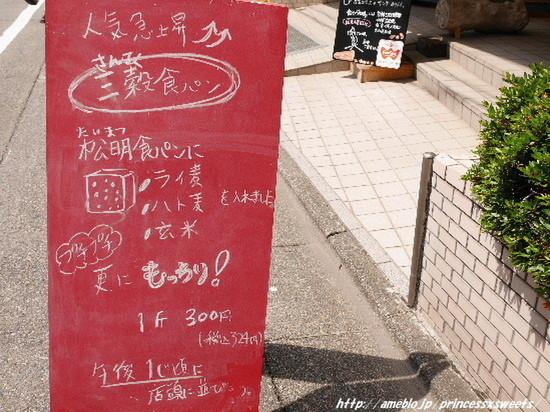 人気急上昇
さんこく
三穀食パン
たいまつ
松明食パンに
ライ麦
ハト麦
玄米
を入れました
プチプチ
更に もっちり!
1斤 300円
(税込324円)
午後1じ頃に
店頭に並び
http://ameblo.jp/princessxsweets/